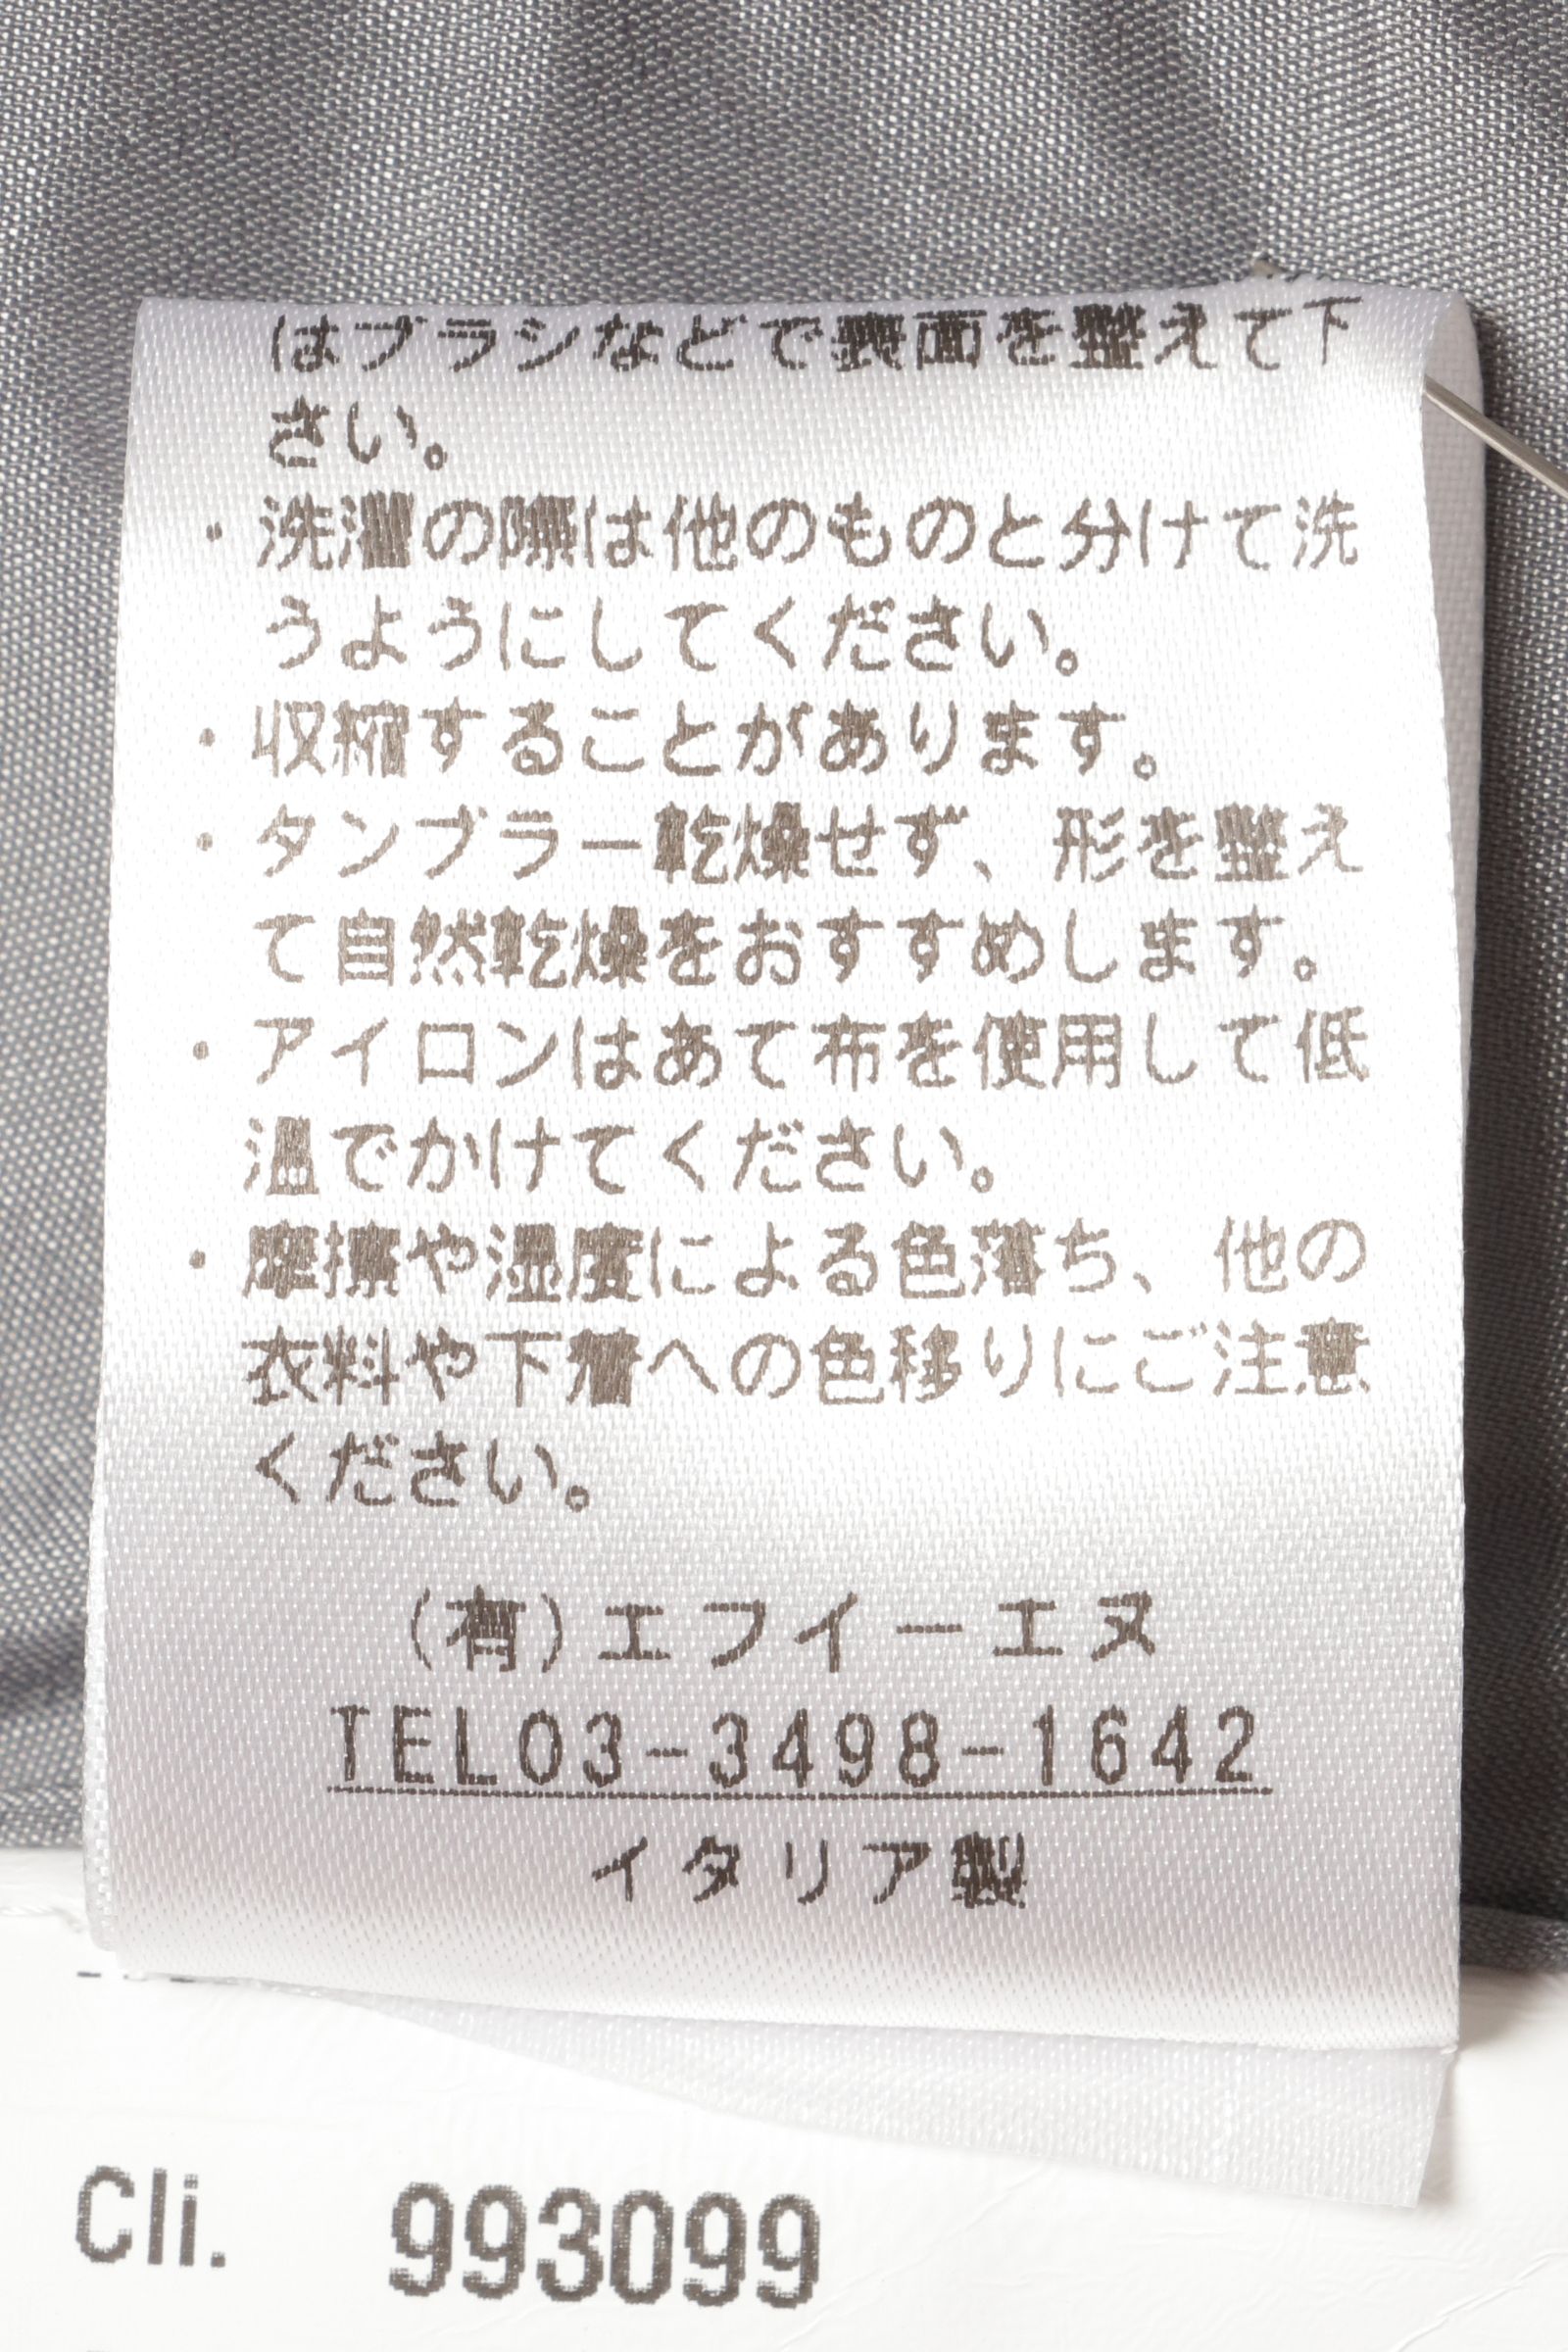 はブラシなどで表面を整えて下
さい。
・洗濯の際は他のものと分けて洗
うようにしてください。
・収縮することがあります。
・タンブラー乾燥せず、形を整え
て自然乾燥をおすすめします。
・アイロンはあて布を使用して低
温でかけてください。
・摩擦や湿度による色落ち、他の
衣料や下着への色移りにご注意
ください。
(有)エフイーエヌ
TEL03-3498-1642
イタリア製
Cli. 993099